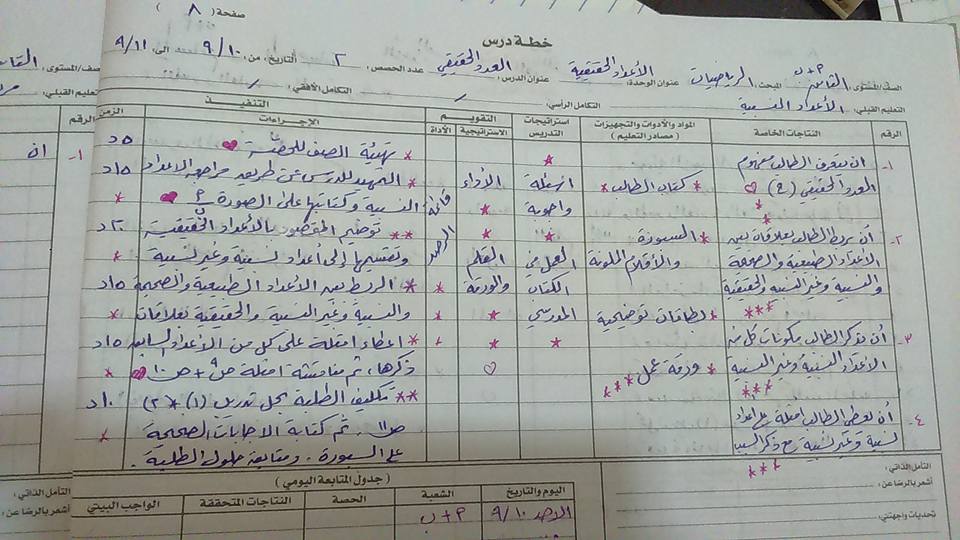 صفحة ( ٨ )
خطة درس
الصف/المستوى: التاسع أ+ب المبحث: الرياضيات عنوان الوحدة: الأعداد الحقيقية عنوان الدرس: العدد الحقيقي عدد الحصص: ٢ التاريخ: من: ٩/١٠ الى: ٩/١١
التعليم القبلي: الأعداد النسبية التكامل الرأسي: / التكامل الأفقي: /
الرقم النتاجات الخاصة المواد والأدوات والتجهيزات استراتيجيات التقويم التنفيذ
( مصادر التعليم ) التدريس الاستراتيجية الأداة الإجراءات الزمن
١- ان يتعرف الطالب مفهوم
العدد الحقيقي (ح)
٢- أن يربط الطالب بعلاقات بين
الأعداد الطبيعية والصحيحة
والنسبية وغير النسبية والحقيقية
٣- أن يذكر الطالب مكونات كل من
الأعداد النسبية وغير النسبية
٤- أن يعطي الطالب امثلة على اعداد
نسبية وغير نسبية مع ذكر السبب
* كتاب الطالب *
* السبورة
والأقلام الملونة
* بطاقات توضيحية
* ورقة عمل
اسئلة
واجوبة
العمل في
الكتاب
المدرسي
الأداء
القلم
والورقة
قائمة
الرصد
* تهيئة الصف للحصة ٥ د
* التمهيد للدرس عن طريق مراجعة الاعداد ١٥ د
النسبية وكتابتها على الصورة
** توضيح المقصود بالأعداد الحقيقية ٢٠ د
وتقسيمها إلى أعداد نسبية وغير نسبية
* الربط بين الأعداد الطبيعية والصحيحة ١٥ د
والنسبية وغير النسبية والحقيقية بعلاقات
* اعطاء امثلة على كل من الأعداد السابق ١٥ د
ذكرها، ثم مناقشة امثلة ص٩ + ص١٠
** تكليف الطلبة بحل تدريب (١) + (٢) ١٠ د
ص١١. ثم كتابة الاجابات الصحيحة
على السبورة. ومتابعة حلول الطلبة.
التأمل الذاتي:
أشعر بالرضا عن:
تحديات واجهتني:
( جدول المتابعة اليومي )
اليوم والتاريخ الشعبة الحصة النتاجات المتحققة الواجب البيتي
الاحد ٩/١٠ أ+ب
صف/المستوى: التاس
تعليم القبلي:
الرقم
١- ان
التأمل الذاتي:
أشعر بالرضا عن: